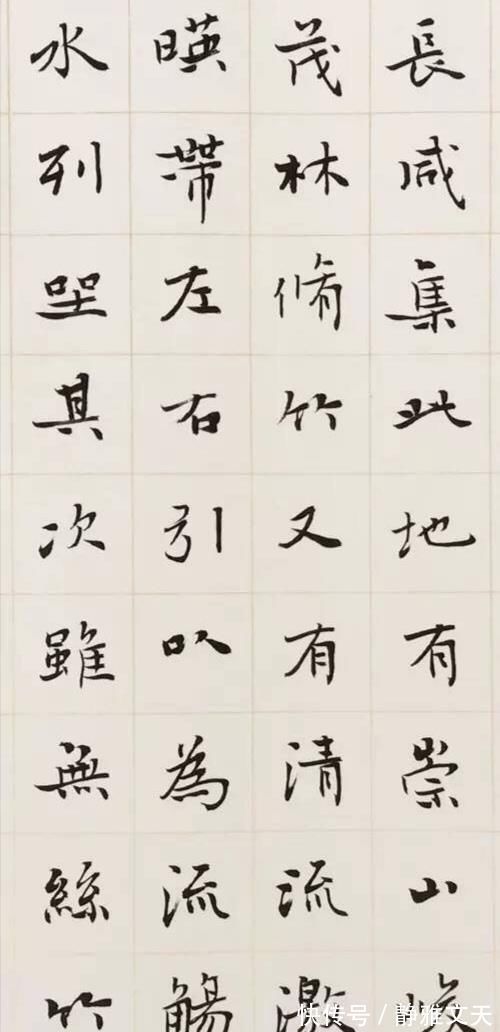 長咸集此地有崇山峻
茂林脩竹又有清流激
暎帶左右引以為流觴
水列坐其次雖無絲竹
快传号/静雅文天